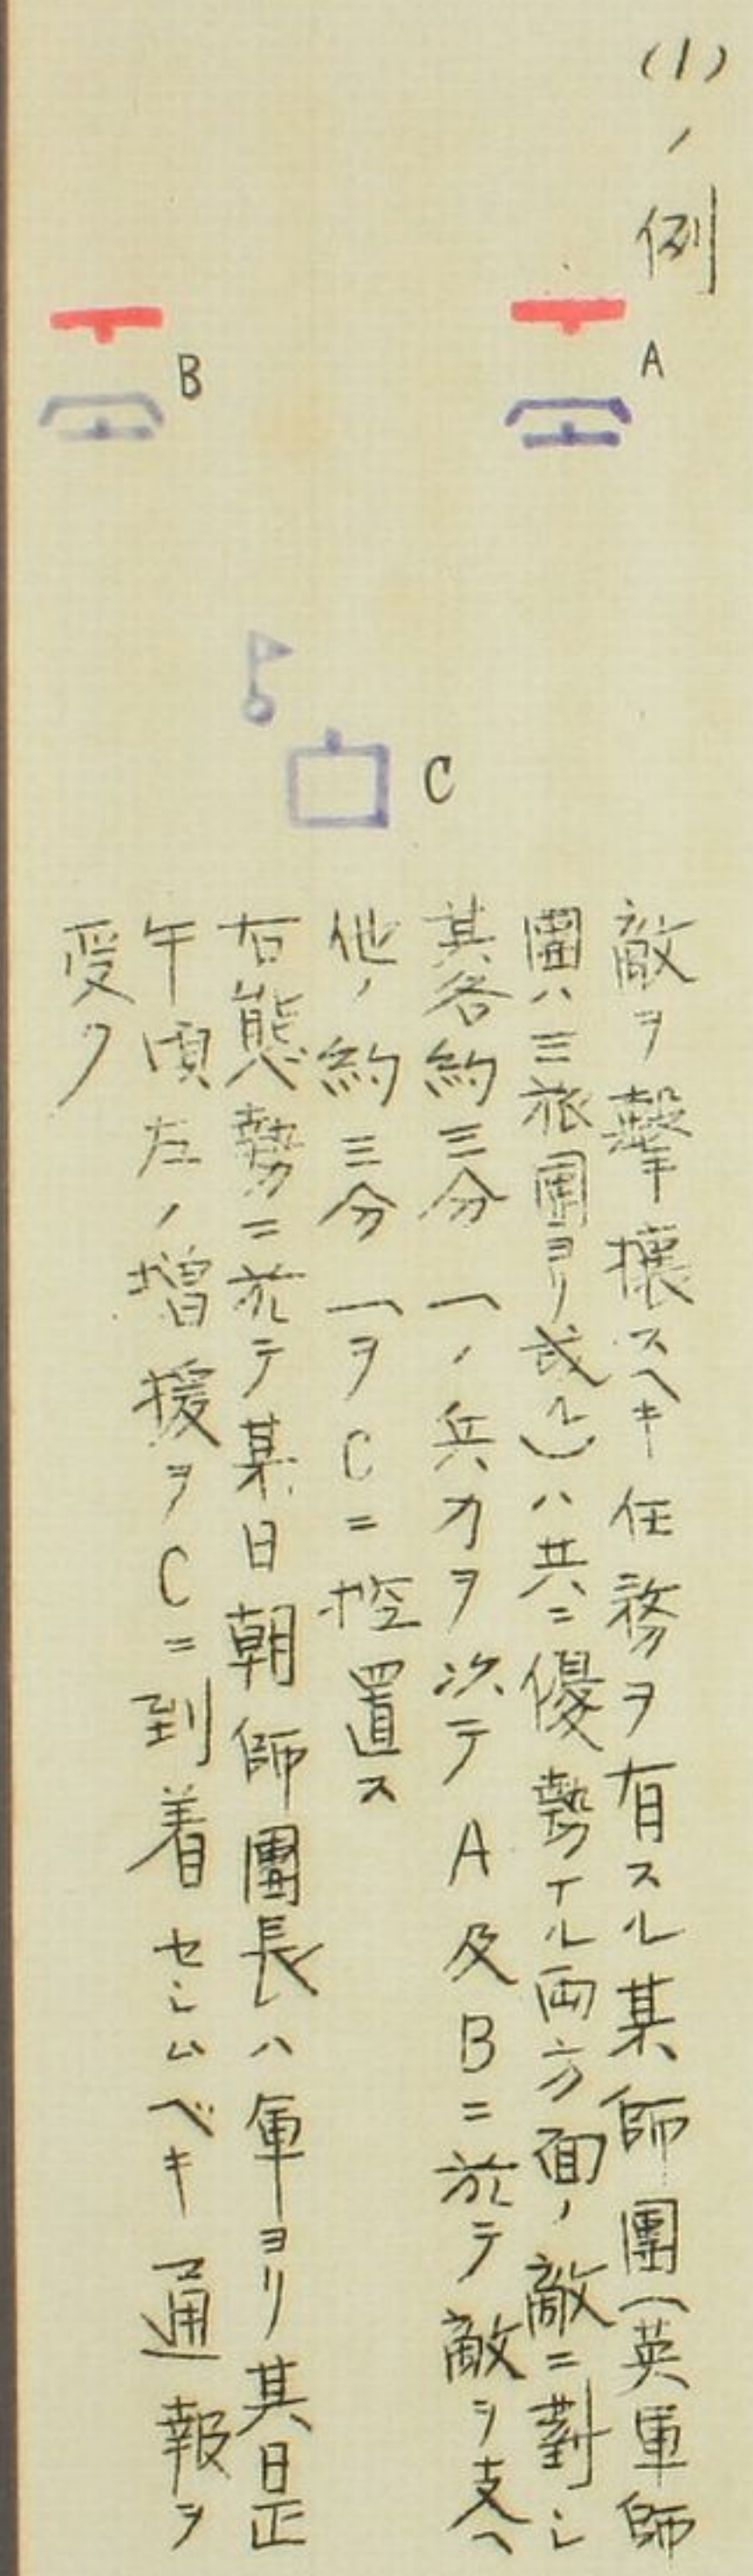 (1)ノ例
A
B
C
敵ヲ擊壤スヘキ任務ヲ有スル某師團(英軍師
團ハ三旅團ヨリ成ル)ハ共ニ優勢ナル両方面ノ敵ニ對シ
其各約三分一ノ兵力ヲ次テA及Bニ於テ敵ヲ支ヘ
他ノ約三分一ヲCニ控置ス
右態勢ニ於テ某日朝師團長ハ軍ヨリ其日正
午頃左ノ増援ヲCニ到着セシムベキ通報ヲ
受ク